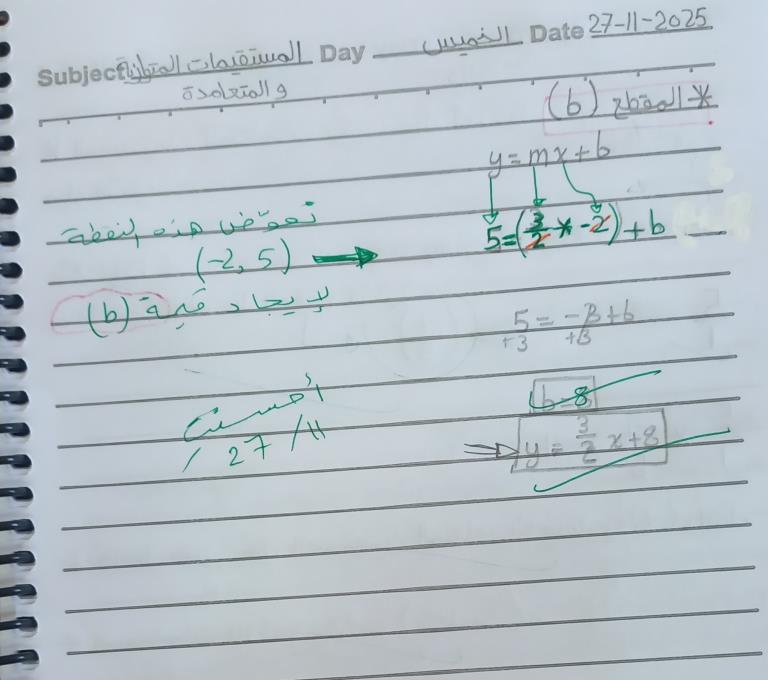 Subject المستقيمات المتوازية Day الخميس Date 27-11-2025
والمتعامدة
* المقطع (b)
y = mx + b
نعوّض هذه النقطة
5 = (3/2 × -2) + b
(-2, 5)
لإيجاد قيمة (b)
5 = -3 + b
+3 +3
b = 8
أحسنت
27 / 11 /
y = 3/2 x + 8